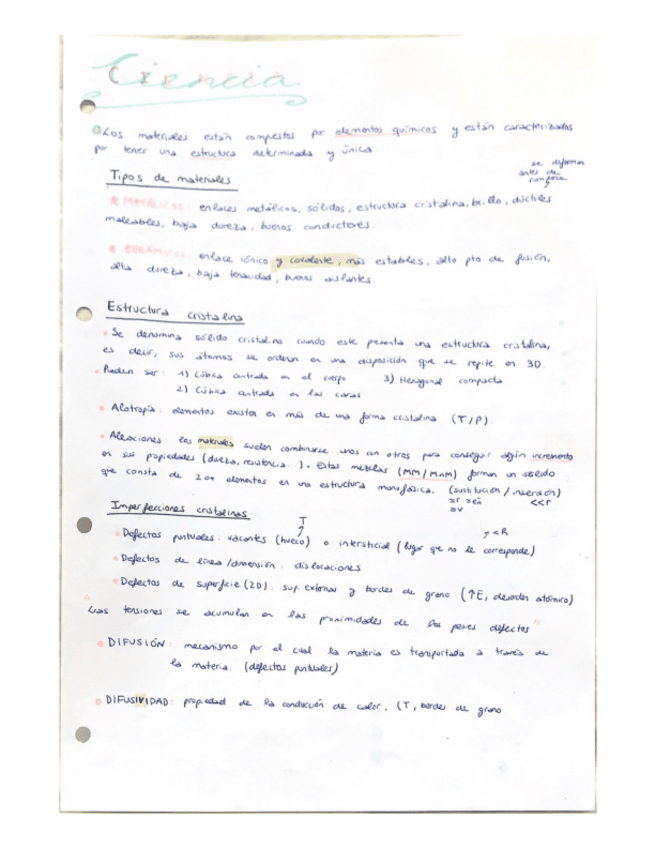 Ciencia
Los materiales están compuestos por elementos químicos y están caracterizados
por tener una estructura determinada y única.
se deforman
antes de
romperse
Tipos de materiales
METÁLICOS: enlaces metálicos, sólidos, estructura cristalina, brillo, dúctiles
maleables, baja dureza, buenos conductores.
CERÁMICOS: enlace iónico y covalente, más estables, alto pto de fusión,
alta dureza, baja tenacidad, buenos aislantes.
Estructura cristalina
Se denomina sólido cristalino cuando este presenta una estructura cristalina,
es decir, sus átomos se ordenan en una disposición que se repite en 3D.
Pueden ser: 1) Cúbica centrada en el cuerpo 3) Hexagonal compacta
2) Cúbica centrada en las caras
Alotropía: elementos existen en más de una forma cristalina (T/P).
Aleaciones: los materiales suelen combinarse unos con otros para conseguir algún incremento
en sus propiedades (dureza, resistencia...). Estas mezclas (MM/MnM) forman un sólido
que consta de 2 o + elementos en una estructura monofásica. (sustitución / inserción)
=r =e <<r
=v
Imperfecciones cristalinas
T
↑ <R
Defectos puntuales: vacantes (hueco) o intersticial (lugar que no le corresponde)
Defectos de línea/dimensión: dislocaciones
Defectos de superficie (2D): sup. externas y bordes de grano (↑E, desorden atómico)
"Las tensiones se acumulan en las proximidades de los defectos"
DIFUSIÓN: mecanismo por el cual la materia es transportada a través de
la materia. (defectos puntuales)
DIFUSIVIDAD: propiedad de la conducción de calor. (T, bordes de grano